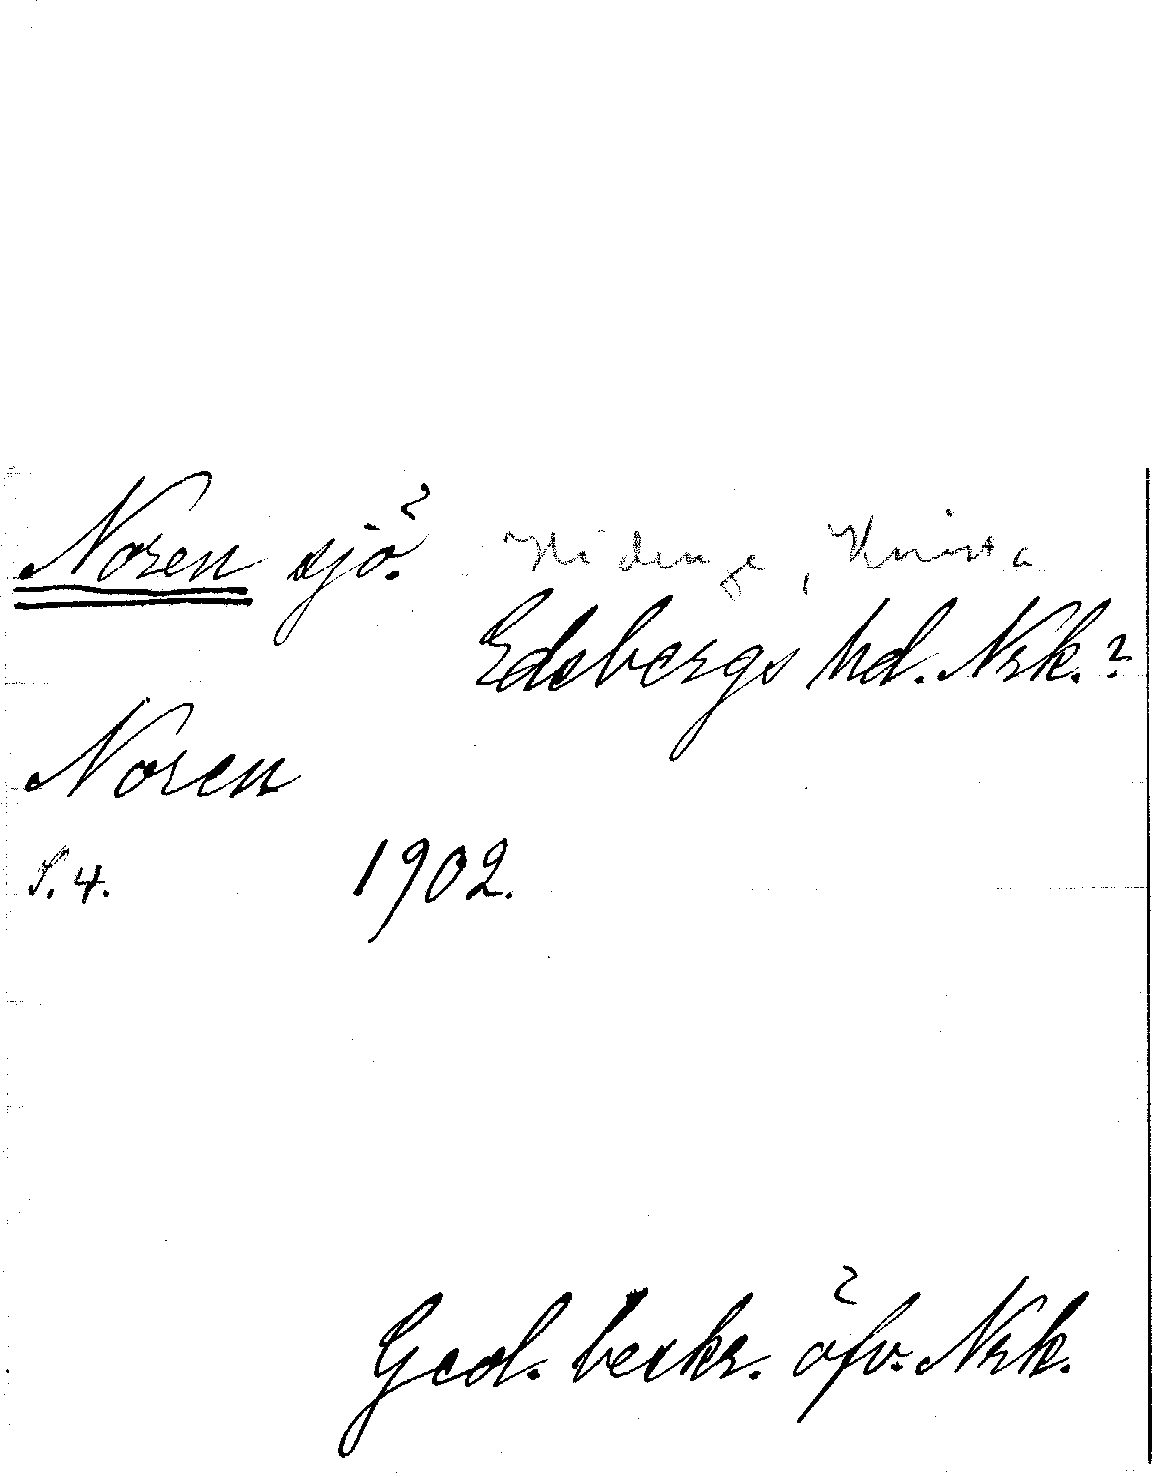 Noren sjö. Hidinge, Knista
Edsbergs hd. Nrk.?
Noren
S. 4. 1902.
Geol. beskr. öfv. Nrk.